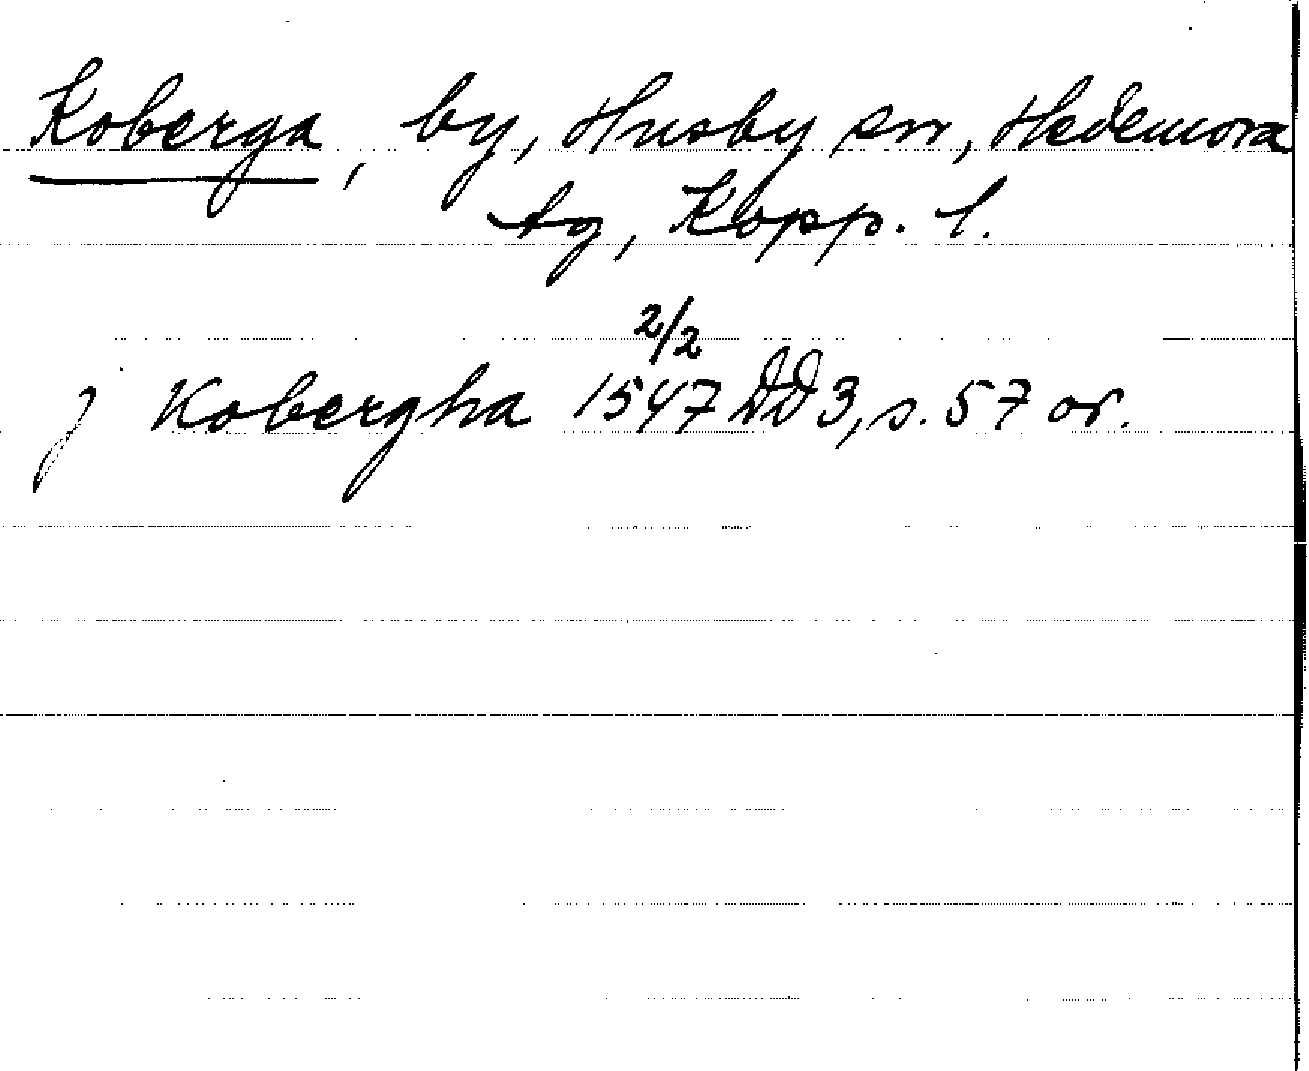 Koberga, by, Husby sn, Hedemora
tg, Kopp. l.
j Kobergha 1547 2/2 DD 3, s. 57 or.